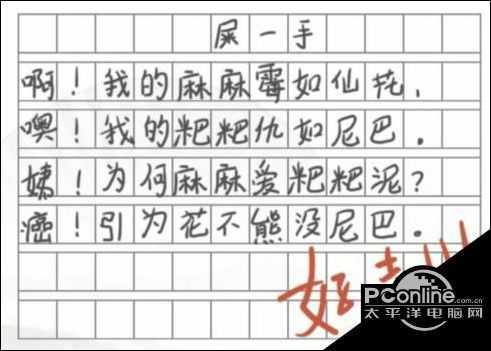 屎一手
啊！我的麻麻霉如仙芲，
噢！我的粑粑仇如尼巴．
姨！为何麻麻爱粑粑泥？
癌！引为花不熊没尼巴．
好
PConline
.com.cn
太平洋电脑网